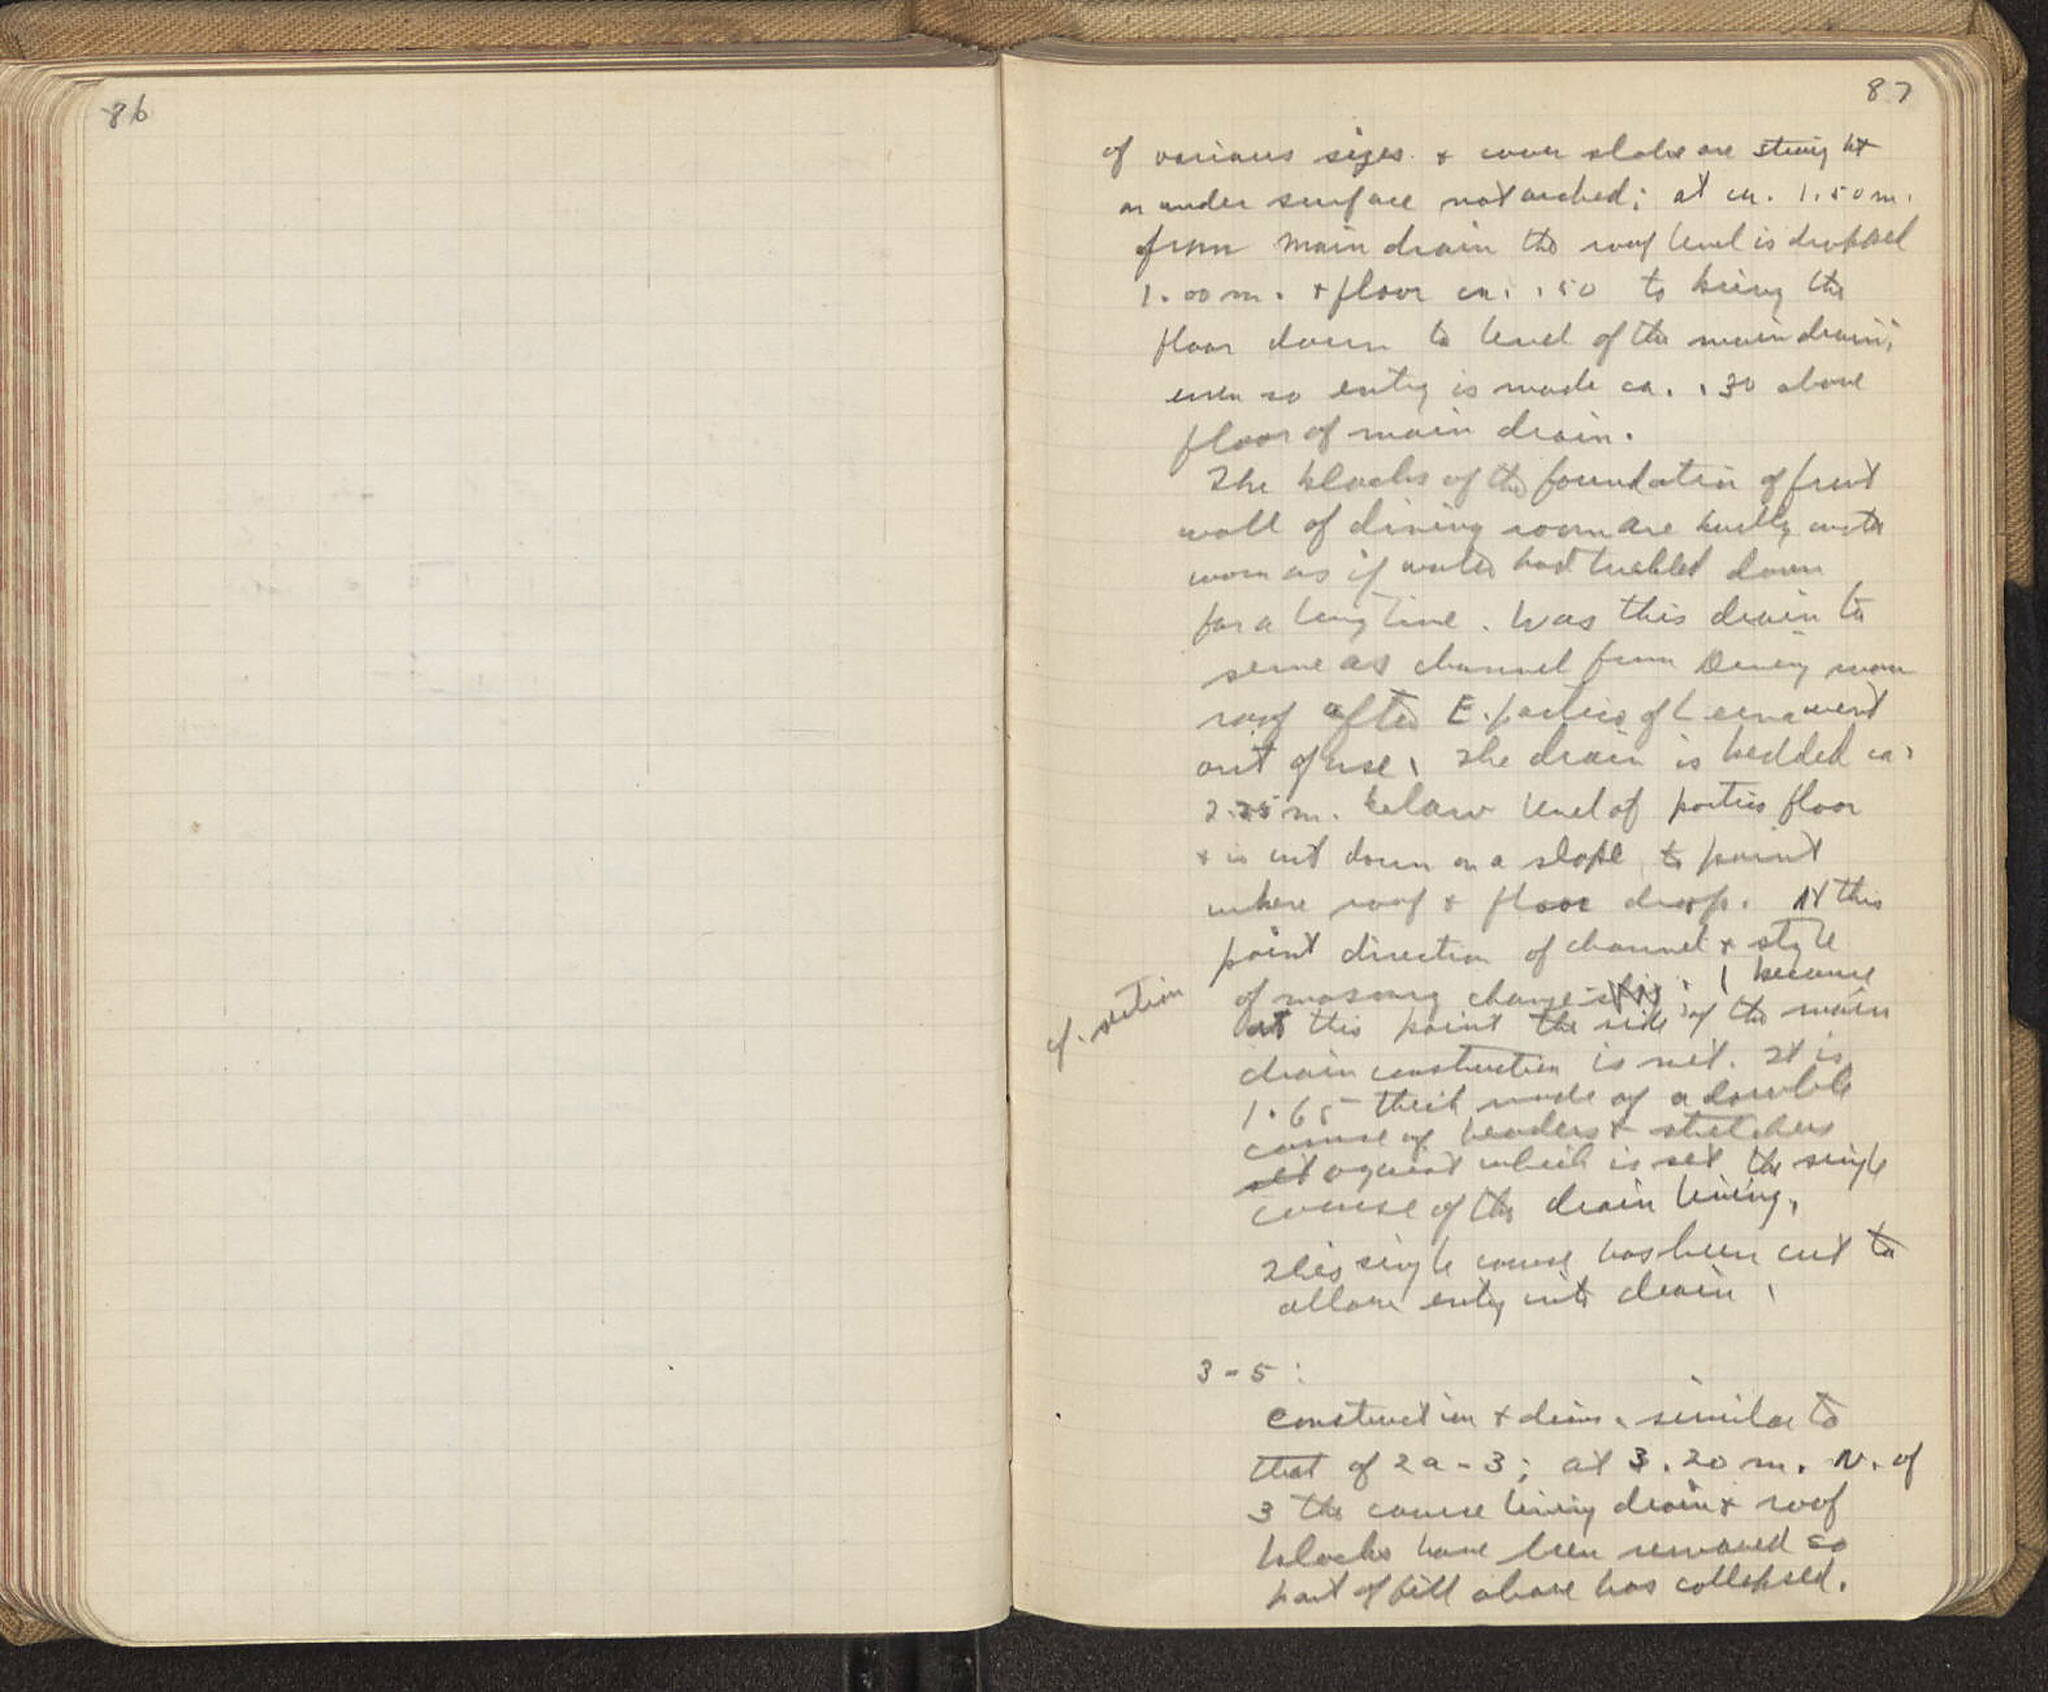 86
87
of various sizes & cover slabs are straight
on under surface not arched; at ca. 1.50 m.
from main drain the roof level is dropped
1.00 m. & floor ca. .50 to bring the
floor down to level of the main drain;
even so entry is made ca. .30 above
floor of main drain.
The blocks of the foundation of front
wall of dining room are badly water
worn as if water had trickled down
for a long time. Was this drain to
serve as channel from Dining room
roof after E. portico of Lerna went
out of use. The drain is bedded ca.
2.25 m. below level of portico floor
& is cut down on a slope to point
where roof & floor drop. At this
point direction of channel & style
of masonry change because
cf. section
at this point the side of the main
drain construction is met. It is
1.65 thick made of a double
course of headers & stretchers
set against which is set the single
course of the drain lining.
This single course has been cut to
allow entry into drain.
3-5:
Construction & dims. similar to
that of 2a-3; at 3.20 m. N. of
3 the course lining drain & roof
blocks have been removed so
part of fill above has collapsed.